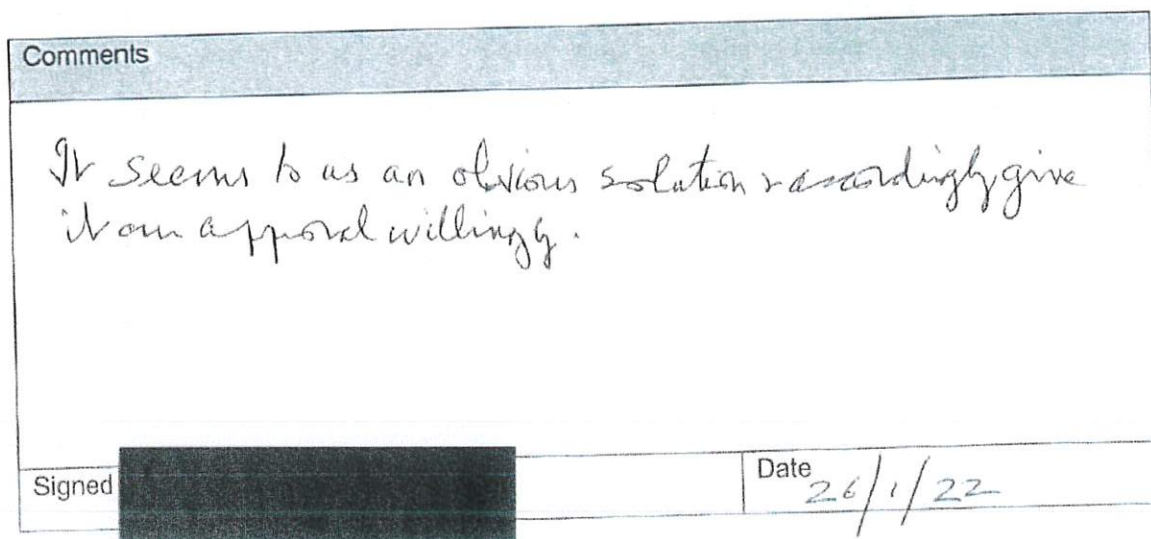 Comments
It seems to us an obvious solution & accordingly give
it our approval willingly.
Signed
Date
26/1/22